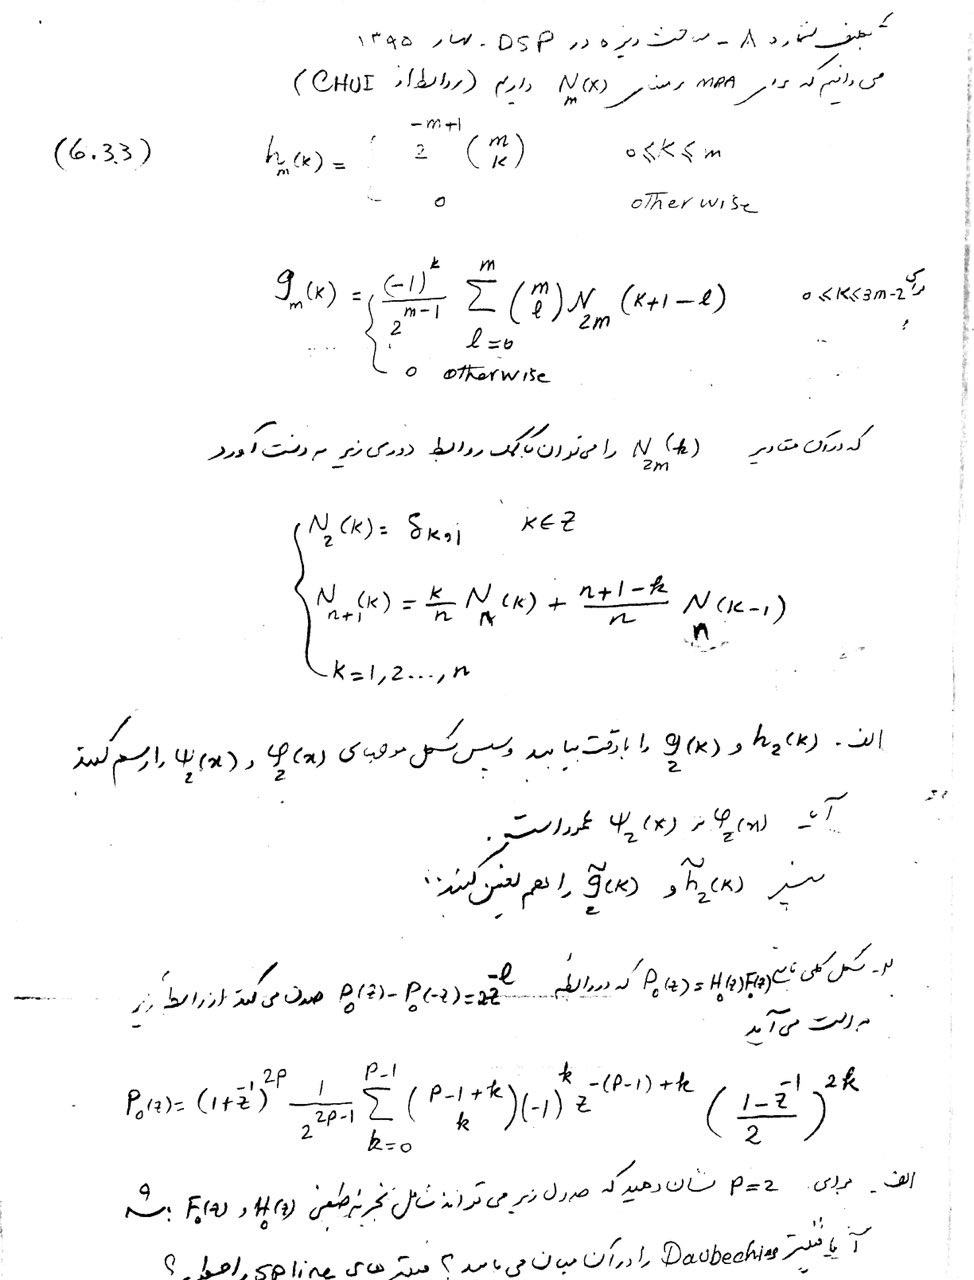 تکلیف شماره 8 - مباحث ویژه در DSP - بهار ۱۳۹۵
می دانیم که برای MRA بر مبنای N_m(x) داریم (روابط از CHUI)
(6.3.3) h_m(k) = { 2^{-m+1} (m k) 0≤k≤m
0 otherwise
g_m(k) = { (-1)^k / 2^{m-1} Σ_{l=0}^{m} (m l) N_{2m}(k+1-l) برای 0≤k≤3m-2
0 otherwise
که در آن مقادیر N_{2m}(k) را می توان با کمک روابط دوری زیر به دست آورد
{ N_2(k) = δ_{k,1} k∈Z
N_{n+1}(k) = k/n N_n(k) + (n+1-k)/n N_n(k-1)
k=1,2...,n
الف - h_2(k) و g_2(k) را با دقت بیابید و سپس شکل موجهای φ_2(x) و ψ_2(x) را رسم کنید
آیا φ_2(x) بر ψ_2(x) عمود است.
سپس h̃_2(k) و g̃_2(k) را هم تعیین کنید..
۲- شکل کلی تابع P_0(z)=H_0(z)F_0(z) که در رابطه P_0(z)-P_0(-z)=2z^{-l} صدق می کند از رابطه زیر
به دست می آید
P_0(z) = (1+z^{-1})^{2p} 1/2^{2p-1} Σ_{k=0}^{p-1} (p-1+k k)(-1)^k z^{-(p-1)+k} ((1-z^{-1})/2)^{2k}
الف - برای p=2 نشان دهید که جدول زیر می تواند شامل تجزیه طیفی H_0(z) و F_0(z) باشد و
آیا فیلتر Daubechies را در آن میان می یابید؟ فیلتر های spline را چطور؟